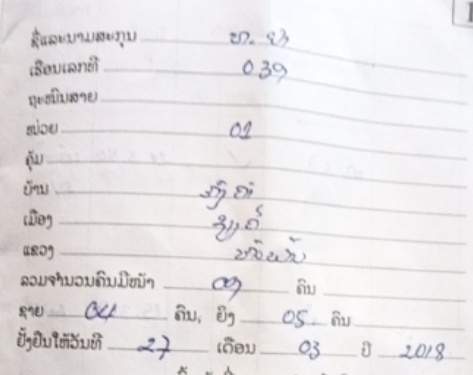 ຊື່ແລະນາມສະກຸນ ທ. ຢ່າ
ເຮືອນເລກທີ 039
ຖະໜົນສາຍ
ໜ່ວຍ 01
ຄຸ້ມ
ບ້ານ
ເມືອງ
ແຂວງ
ລວມຈຳນວນຄົນມີໜ້າ 09 ຄົນ
ຊາຍ 04 ຄົນ, ຍິງ 05 ຄົນ
ຢັ້ງຢືນໃຫ້ວັນທີ 27 ເດືອນ 03 ປີ 2018